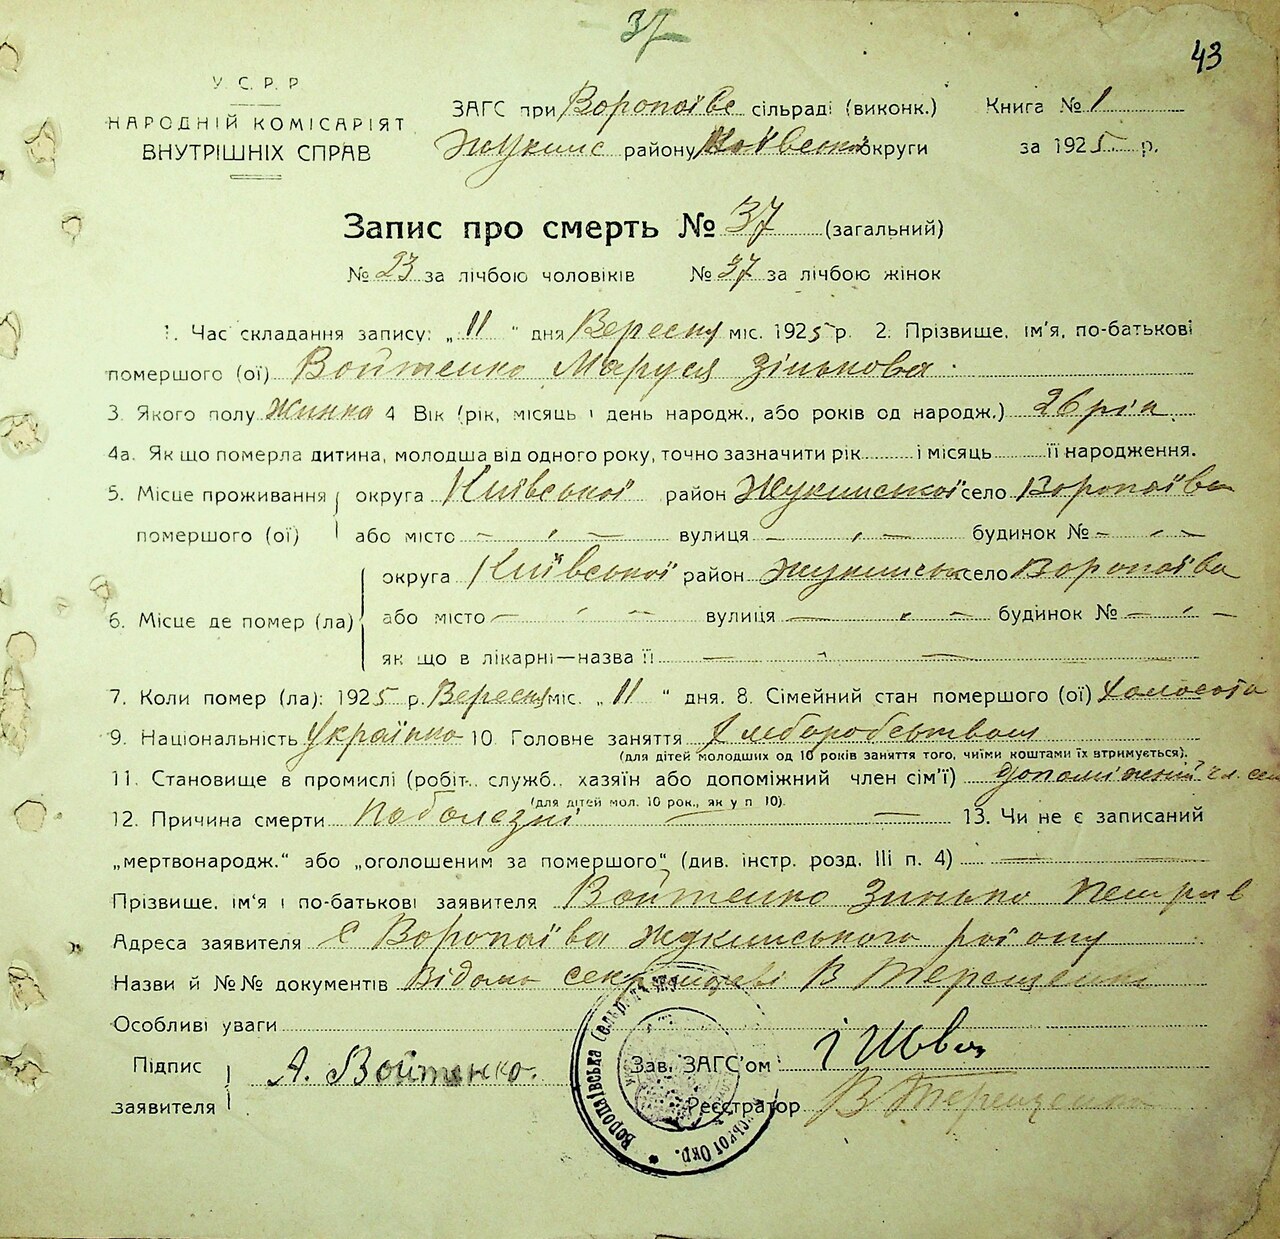 37
43
У. С. Р. Р.
НАРОДНІЙ КОМІСАРІЯТ
ВНУТРІШНІХ СПРАВ
ЗАГС при Воропаївс сільраді (виконк.)
Жукинс району Київської округи
Книга № 1
за 1925 р.
Запис про смерть № 37 (загальний)
№ 23 за лічбою чоловіків № 37 за лічбою жінок
1. Час складання запису: „11" дня Вересня міс. 1925 р. 2. Прізвище, ім'я, по-батькові
помершого (ої) Войтенко Маруся Зінькова
3. Якого полу Жинка 4 Вік (рік, місяць і день народж., або років од народж.) 26 рік
4а. Як що померла дитина, молодша від одного року, точно зазначити рік і місяць її народження.
5. Місце проживання помершого (ої) округа Київської район Жукинської село Воропаїва
або місто — вулиця — будинок № —
6. Місце де помер (ла) округа Київської район Жукинськ село Воропаїва
або місто — вулиця — будинок № —
як що в лікарні—назва її —
7. Коли помер (ла): 1925 р. Вересня міс. „11" дня. 8. Сімейний стан помершого (ої) Холоста
9. Національність Українка 10. Головне заняття Хліборобством
(для дітей молодших од 10 років заняття того, чиїми коштами їх втримується).
11. Становище в промислі (робіт., служб., хазяїн або допоміжний член сім'ї) допоміжний чл. сем
(для дітей мол. 10 рок., як у п 10).
12. Причина смерти по болезні — 13. Чи не є записаний
„мертвонародж." або „оголошеним за помершого" (див. інстр. розд. III п. 4) —
Прізвище, ім'я і по-батькові заявителя Войтенко Зинько Петрів
Адреса заявителя с Воропаїва Жукинського району
Назви й №№ документів Відомо секретареві В Терещенко
Особливі уваги
Підпис заявителя А. Войтенко.
Зав. ЗАГС'ом
Реєстратор В Терещенко
Воропаївська Сельрада
ської Окр.